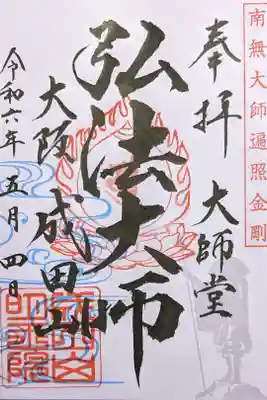 南無大師遍照金剛
奉拝 大師堂
弘法大師
大阪 成田山
令和六年五月四日